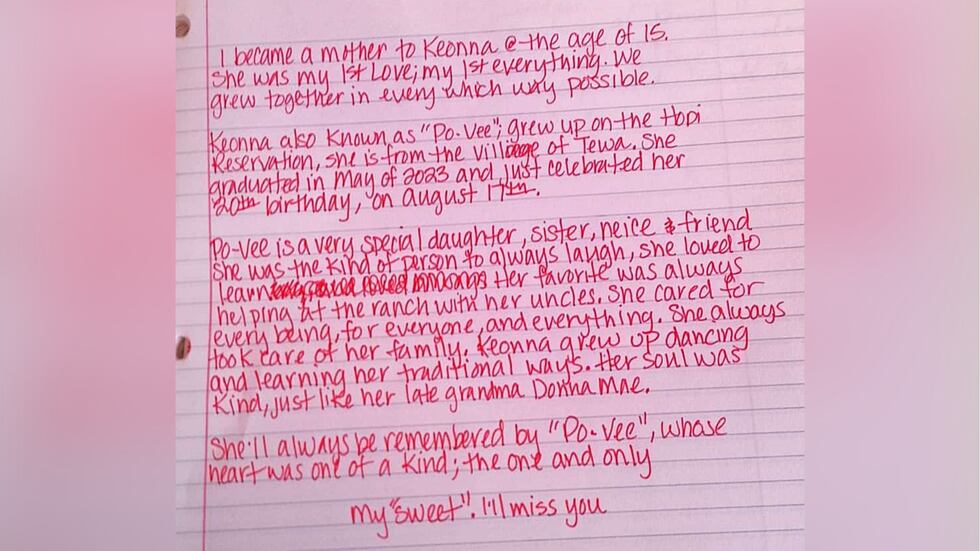 I became a mother to Keonna @ the age of 15.
She was my 1st Love; my 1st everything. We
grew together in every which way possible.
Keonna also known as "Po-Vee"; grew up on the Hopi
Reservation, she is from the village of Tewa. She
graduated in May of 2023 and just celebrated her
20th birthday, on August 17th.
Po-Vee is a very special daughter, sister, neice & friend
She was the kind of person to always laugh, she loved to
learn Her favorite was always
helping at the ranch with her uncles. She cared for
every being, for everyone, and everything. She always
took care of her family. Keonna grew up dancing
and learning her traditional ways. Her soul was
kind, just like her late grandma Donna Mae.
She'll always be remembered by "Po-Vee", whose
heart was one of a kind; the one and only
my "sweet". I'll miss you